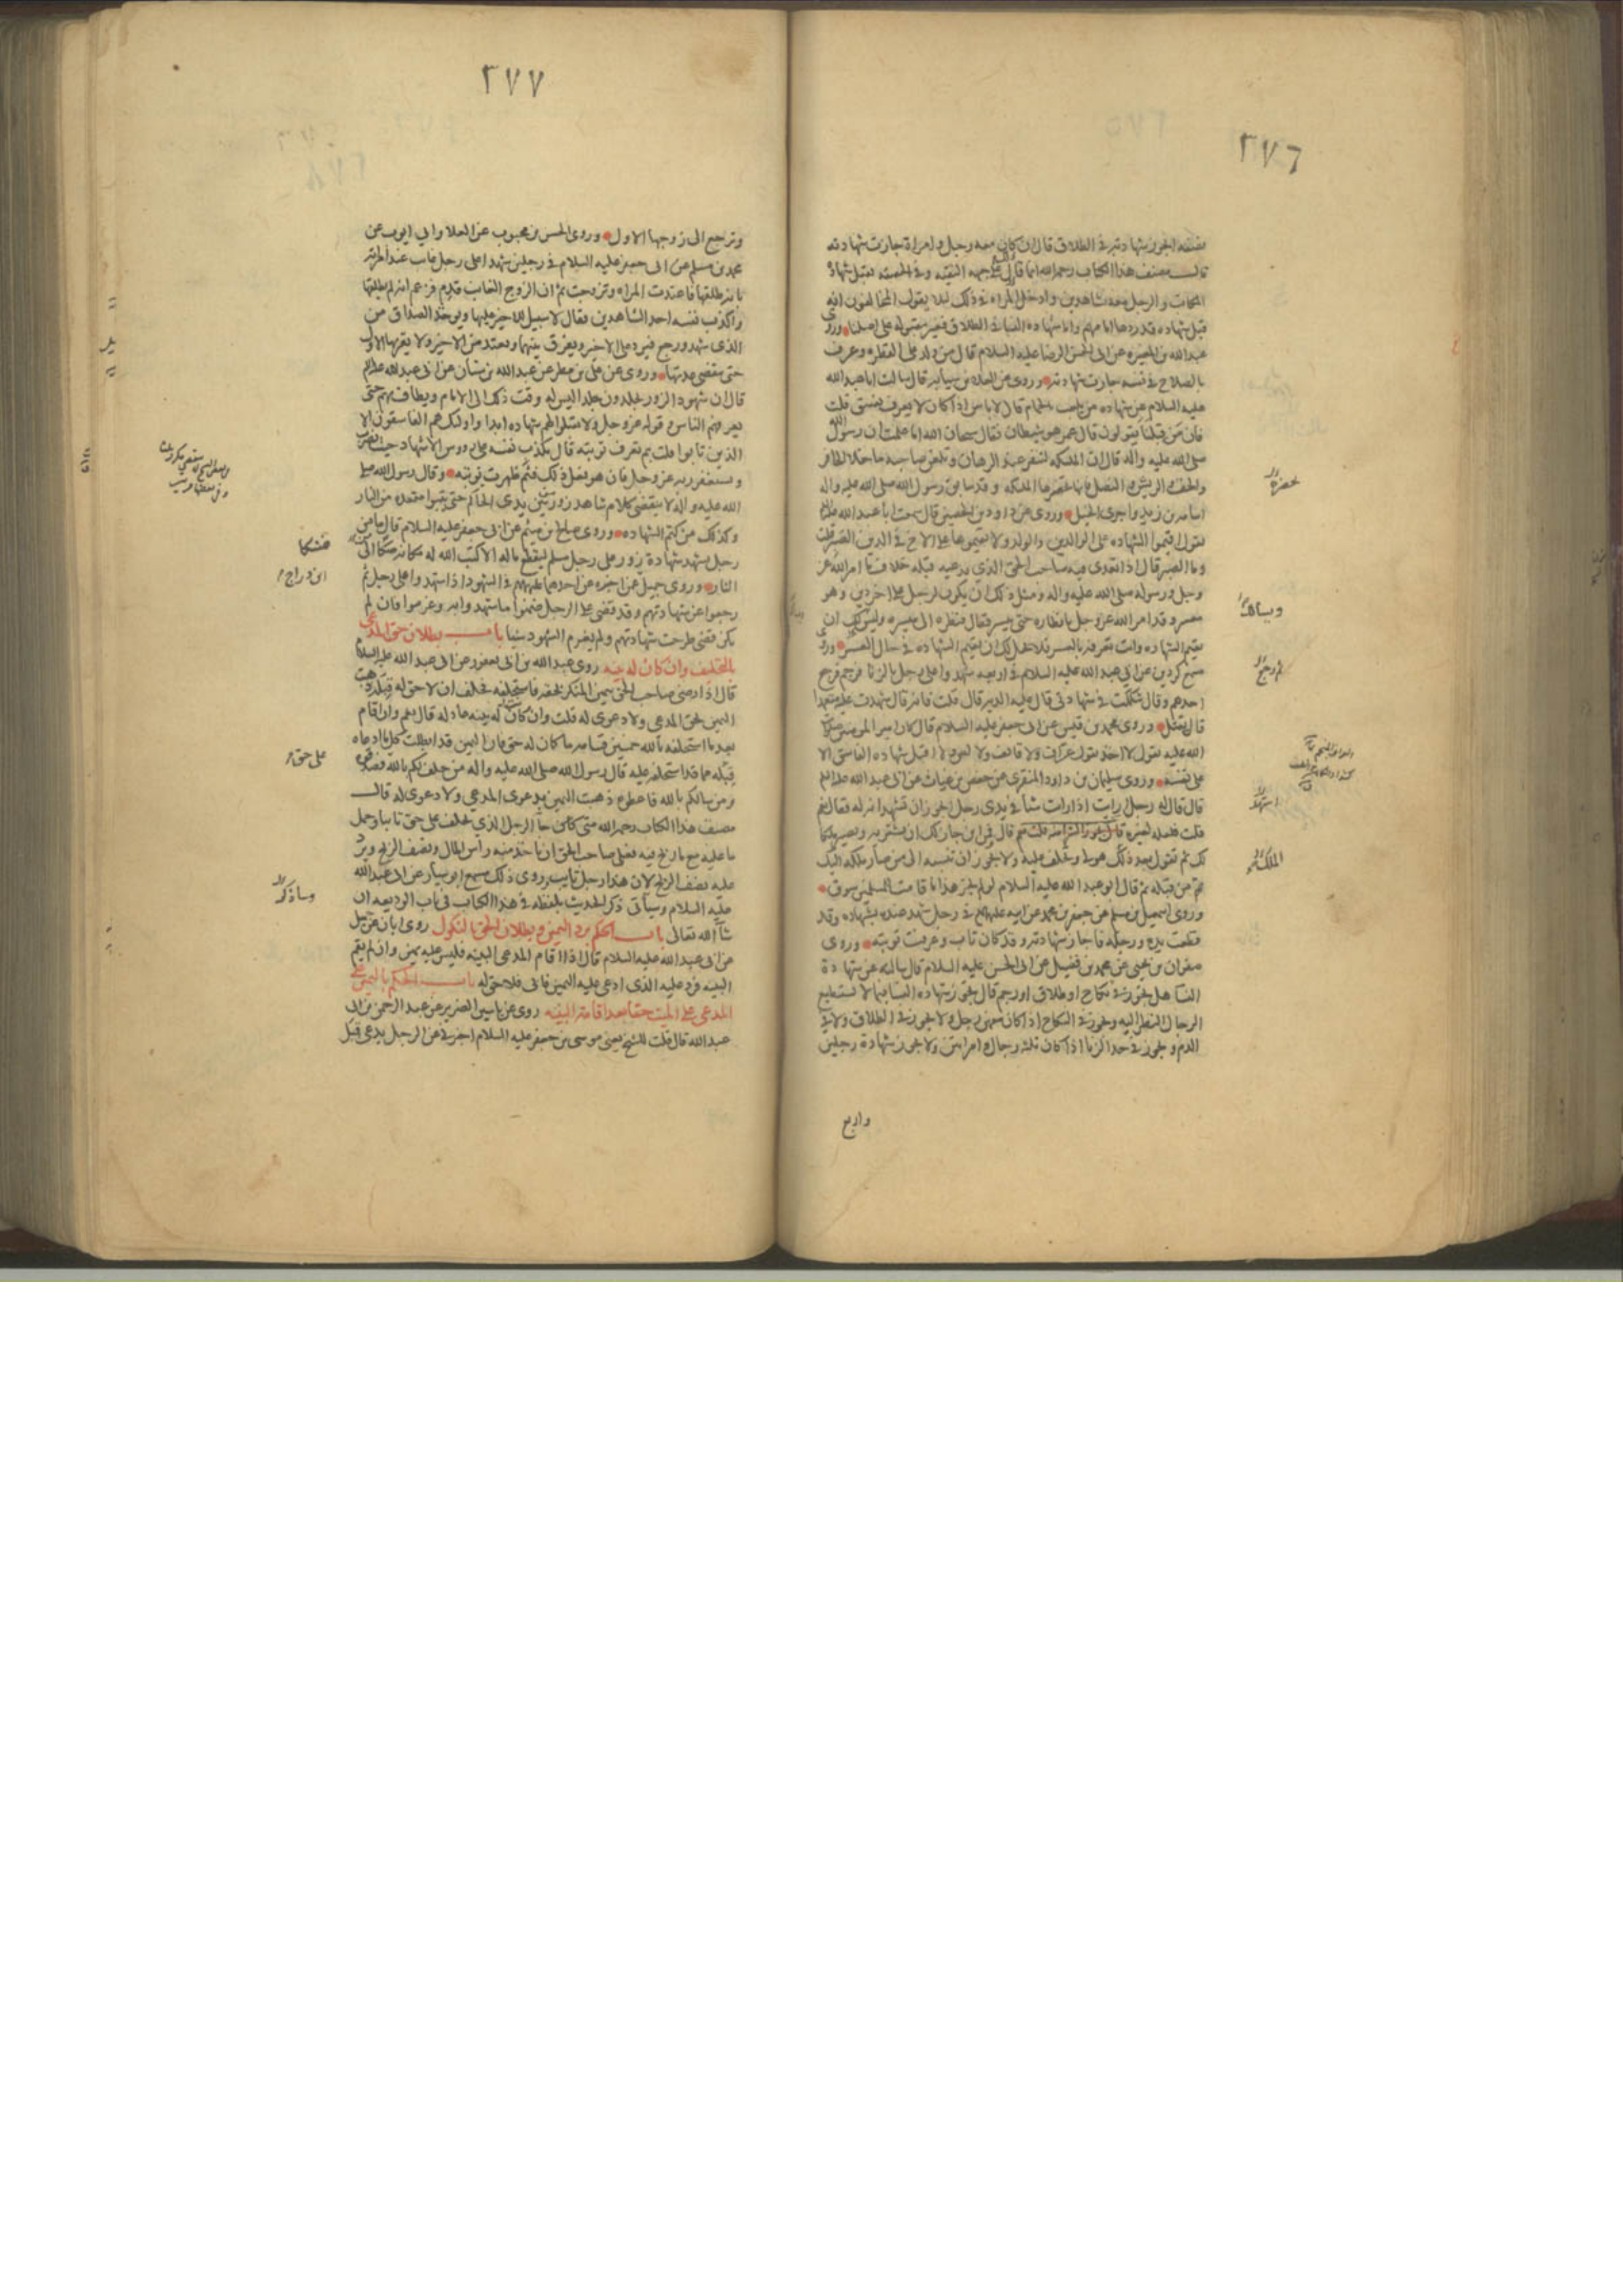 ٢٧٦
نصفه اتجوز شهادته في الطلاق قال ان كان معه رجل وامراة جازت شهادته
قال مصنف هذا الكتاب رحمه الله انما قال ذلك على جهه التقيه وفي الحقيقه تقبل شهادة
المكاتب والرجل معه شاهدين وادخل المراه في ذلك ليلا يقول المخالفون انه
قبل شهاده قد ردها امامهم واما شهاده النسا في الطلاق فغير مقبوله على اصلنا وروى
عبدالله بن المغيره عن ابى الحسن الرضا عليه السلام قال من ولد على الفطره وعرف
بالصلاح في نفسه جازت شهادته وروى عن العلا بن سيابه قال سالت ابا عبدالله
عليه السلام عن شهاده من يلعب بالحمام قال لا باس اذا كان لا يعرف بفسق قلت
فان من قبلنا يقولون قال عمر هو شيطان فقال سبحان الله اما علمت ان رسول الله
صلى الله عليه واله قال ان الملئكه لتنفر عند الرهان وتلعن صاحبه ما خلا الحافر
والخف والريش و النصل فانها تحضرها الملئكه وقد سابق رسول الله صلى الله عليه واله
اسامه بن زيد واجرى الخيل وروى عن داود بن الحصين قال سمعت ابا عبد الله عليه السلم
يقول اقيموا الشهاده على الوالدين والولد ولا تقيموها على الاخ في الدين الضير قلت
وما الضير قال اذا تعدى فيه صاحب الحق الذي يدعيه قبله خلاف ما امر الله عز
وجل ورسوله صلى الله عليه واله ومثل ذلك ان يكون لرجل على اخر دين وهو
معسر وقد امر الله عز وجل بانظاره حتى ييسر فقال فنظره الى ميسره ويسئلك ان
تقيم الشهاده وانت تعرفه بالعسر فلا يحل لك ان تقيم الشهاده في حال العسر وروى
مسمع كردين عن ابي عبدالله عليه السلام في اربعه شهدوا على رجل بالزنا فرجم فرجع
احدهم وقال شككت في شهادتى قال عليه الدية قال قلت فانه قال شهدت عليه متعمدا
قال يقتل وروى محمد بن قيس عن ابى جعفر عليه السلام قال كان امير المومنين صلوات
الله عليه يقول لا اخذ بقول عراف ولا قائف ولا لص ولا اقبل شهاده الفاسق الا
على نفسه وروى سليمان بن داود المنقرى عن حفص بن غياث عن ابى عبد الله عليه السلم
قال قال له رجل ارايت اذا رايت شيأ في يدى رجل ايجوز ان تشهد انه له فقال نعم
قلت فلعله لغيره قال ومن اين جاز لك ان تشتريه ويصير ملكا
لك ثم تقول بعد ذلك هو لى وتحلف عليه ولا يجوز ان تنسبه الى من صار ملكه اليك
ثم من قبله ثم قال ابو عبد الله عليه السلام لو لم يجز هذا ما قامت للمسلمين سوق
وروى اسمعيل بن مسلم عن جعفر بن محمد عن ابيه عليهما السلم في رجل شهد عنده بشهاده وقد
قطعت يده ورجله فاجاز شهادته وقد كان تاب وعرفت توبته وروى
صفوان بن يحيى عن محمد بن فضيل عن ابى الحسن عليه السلام قال سالته عن شهادة
النسا هل تجوز في نكاح او طلاق او رجم قال تجوز شهاده النسا فيما لا يستطيع
الرجال النظر اليه وتجوز في النكاح اذا كان معهن رجل ولا تجوز في الطلاق ولا في
الدم وتجوز في حد الزنا اذا كان ثلثه رجال وامراتين ولا تجوز شهادة رجلين
واربع
٢٧٧
وترجع الى زوجها الاول وروى الحسن بن محبوب عن العلا وابي ايوب عن
محمد بن مسلم عن ابى جعفر عليه السلام في رجلين شهدا على رجل غايب عند امراته
بانه طلقها فاعتدت المراه وتزوجت ثم ان الزوج الغايب قدم فزعم انه لم يطلقها
واكذب نفسه احد الشاهدين فقال لا سبيل للاخير عليها ويوخذ الصداق من
الذى شهد ورجع فيرد على الاخير ويفرق بينهما وتعتد من الاخير ولا يقربها الاول
حتى تنقضى عدتها وروى عن على بن مطر عن عبدالله بن سنان عن ابى عبدالله عليه السلم
قال ان شهود الزور يجلدون جلدا ليس له وقت ذلك الى الامام ويطاف بهم حتى
يعرفهم الناس وقوله عز وجل ولا تقبلوا لهم شهاده ابدا واولئك هم الفاسقون الا
الذين تابوا قلت بم تعرف توبته قال يكذب نفسه على رووس الاشهاد حيث يضرب
ويستغفر ربه عز وجل فان هو فعل ذلك فثم ظهرت توبته وقال رسول الله صلى
الله عليه واله لا ينقضى كلام شاهد زور من بين يدى الحاكم حتى يتبوا مقعده من النار
وكذلك من كتم الشهاده وروى صالح بن ميثم عن ابى جعفر عليه السلام قال ما من
رجل يشهد شهادة زور على رجل مسلم ليقطع ماله الا كتب الله له مكانه صكا الى
النار وروى جميل عمن اخبره عن احدهما عليهما السلم في الشهود اذا شهدوا على رجل ثم
رجعوا عن شهادتهم وقد قضى على الرجل ضمنوا ما شهدوا به وغرموا فان لم
يكن قضى طرحت شهادتهم ولم يغرم الشهود شيئا باب بطلان حق المدعى
بالتحليف وان كان له بينه روى عبدالله بن ابى يعفور عن ابى عبد الله عليه السلام
قال اذا رضى صاحب الحق بيمين المنكر لحقه فاستحلفه فحلف ان لا حق له قبله ذهبت
اليمين بحق المدعى ولا دعوى له قلت وان كانت له بينه عادله قال نعم وان اقام
بعد ما استحلفه بالله خمسين قسامه ما كان له حق فان اليمين قد ابطلت كل ما ادعاه
قبله مما قد استحلفه عليه قال رسول الله صلى الله عليه واله من حلف لكم بالله فصدقوه
ومن سالكم بالله فاعطوه ذهبت اليمين بدعوى المدعي ولا دعوى له قال
مصنف هذا الكتاب رحمه الله متى جا الرجل الذي يحلف على حق تايبا وحمل
ما عليه مع ما ربح فيه فعلى صاحب الحق ان ياخذ منه راس المال ونصف الربح ويرد
عليه نصف الربح لان هذا رجل تايب روى ذلك مسمع ابو سيار عن ابى عبدالله
عليه السلام وسياتى ذكر الحديث بلفظه في هذا الكتاب في باب الوديعه ان
شا الله تعالى باب الحكم برد اليمين وبطلان الحق بالنكول روى ابان عن جميل
عن ابى عبدالله عليه السلام قال اذا اقام المدعى البينه فليس عليه يمين وان لم يقم
البينه فرد عليه الذى ادعى عليه اليمين فابى فلا حق له باب الحكم باليمين على
المدعى على الميت حقا بعد اقامة البينه روى عن ياسين الضرير عن عبد الرحمن بن ابى
عبدالله قال قلت للشيخ يعنى موسى بن جعفر عليه السلام اخبرنى عن الرجل يدعى قبل
ابن دراج
على حق